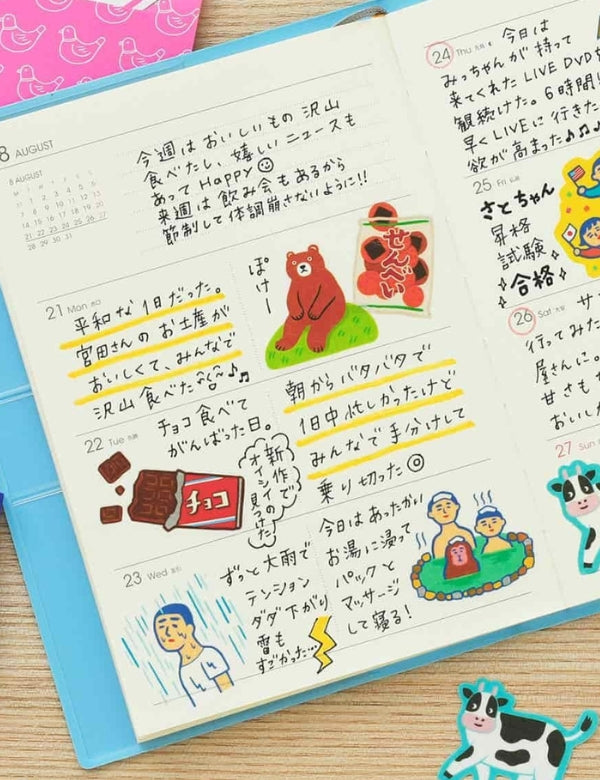 8 AUGUST
8 AUGUST
M T W T F S S
1 2 3 4 5 6
7 8 9 10 11 12 13
14 15 16 17 18 19 20
21 22 23 24 25 26 27
28 29 30 31
今週はおいしいもの沢山
食べたし、嬉しいニュースも
あってHappy
来週は飲み会もあるから
節制して体調崩さないように!!
21 Mon
平和な1日だった。
宮田さんのお土産が
おいしくて、みんなで
沢山食べた♪♪
ぽけー
せんべい
22 Tue
チョコ食べて
がんばった日。
チョコ
新作で
オイシイの
見つけた
朝からバタバタで
1日中忙しかったけど
みんなで手分けして
乗り切った◎
23 Wed
ずっと大雨で
テンション
ダダ下がり
雷も
すごかった…
今日はあったかい
お湯に浸って
パックと
マッサージ
して寝る!
24 Thu 今日は
みっちゃんが持って
来てくれた LIVE DVDを
観続けた。6時間!
早くLIVEに行きた
欲が高まった♪♪♪
25 Fri
さとちゃん
昇格
試験
合格
26 Sat
行ってみた
屋さんに。
甘さも
おいし
27 Sun